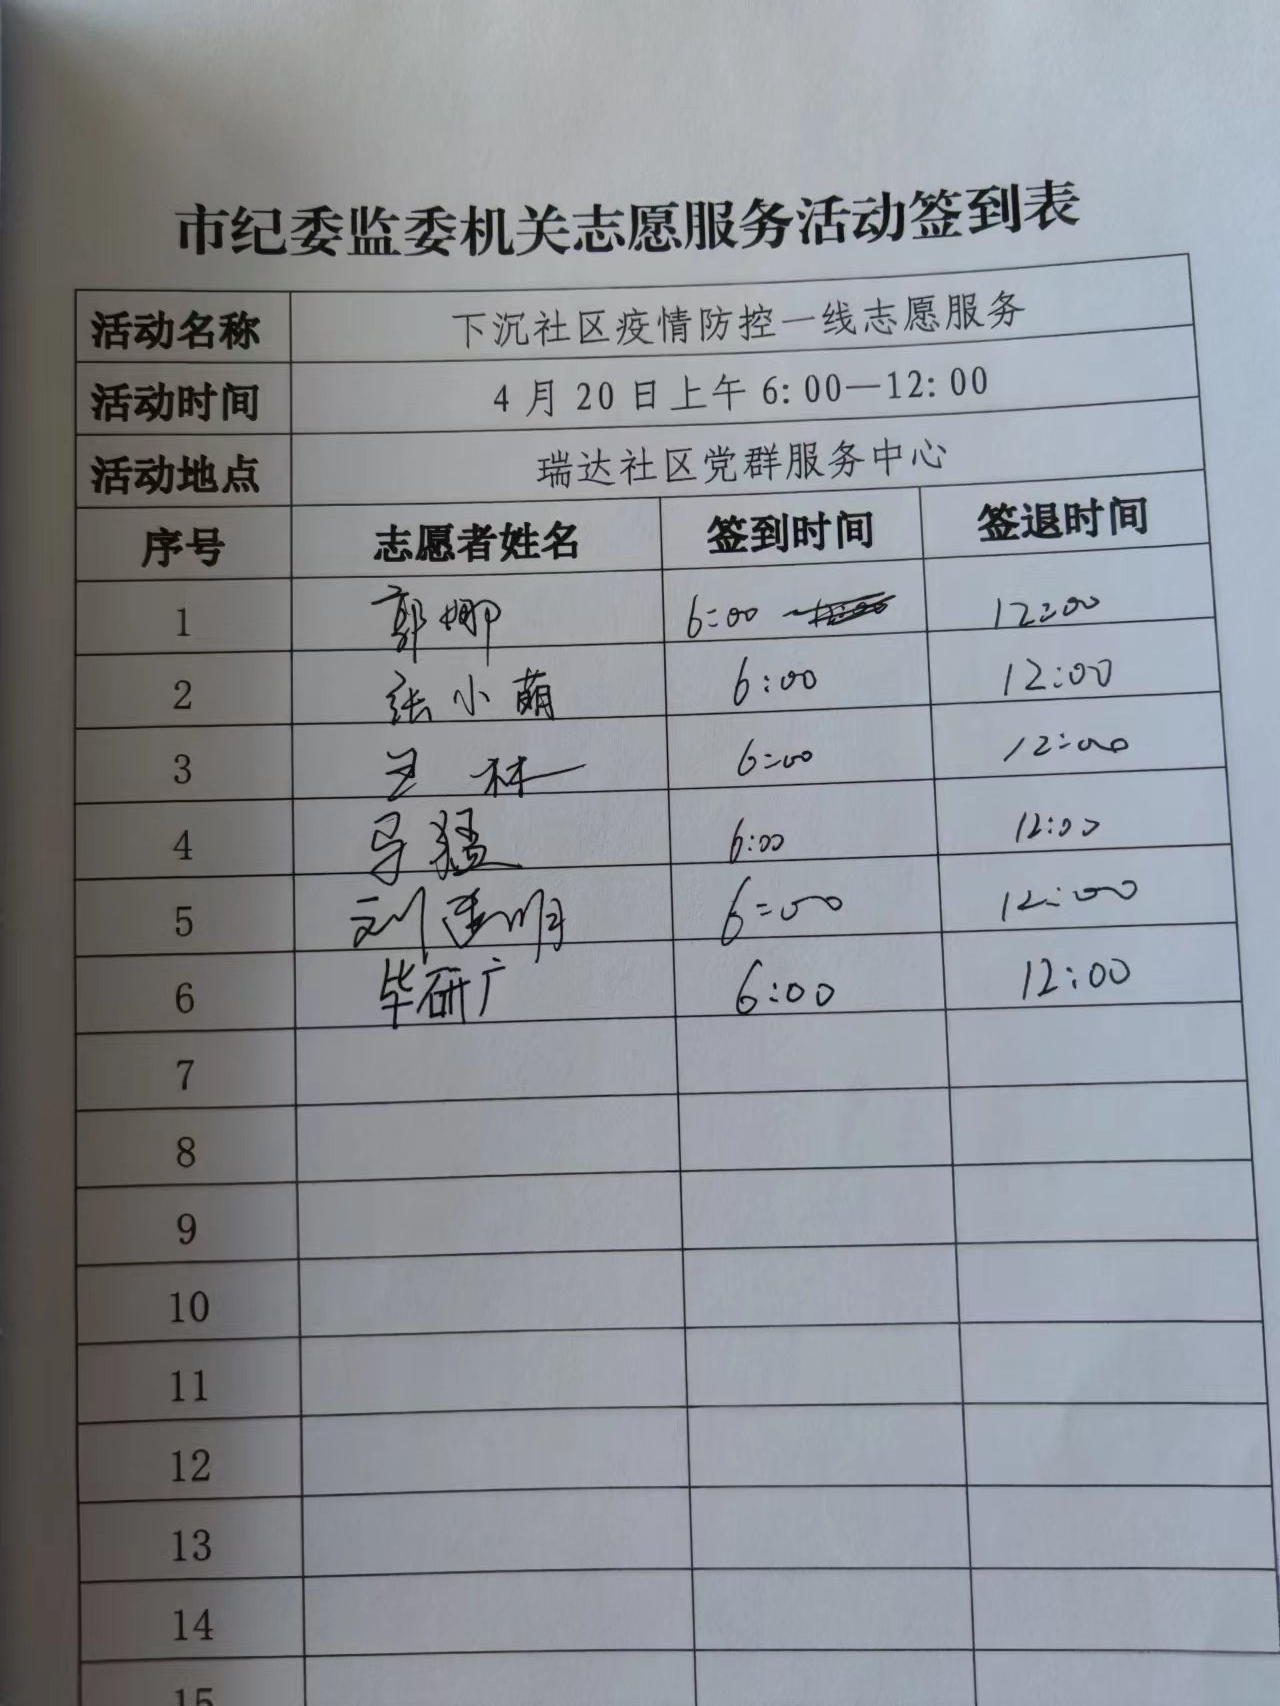 市纪委监委机关志愿服务活动签到表
活动名称 下沉社区疫情防控一线志愿服务
活动时间 4月20日上午6:00—12:00
活动地点 瑞达社区党群服务中心
序号 志愿者姓名 签到时间 签退时间
1 郭娜 6:00 12:00
2 张小萌 6:00 12:00
3 王林 6:00 12:00
4 马猛 6:00 12:00
5 刘明 6:00 12:00
6 毕研广 6:00 12:00
7
8
9
10
11
12
13
14
15